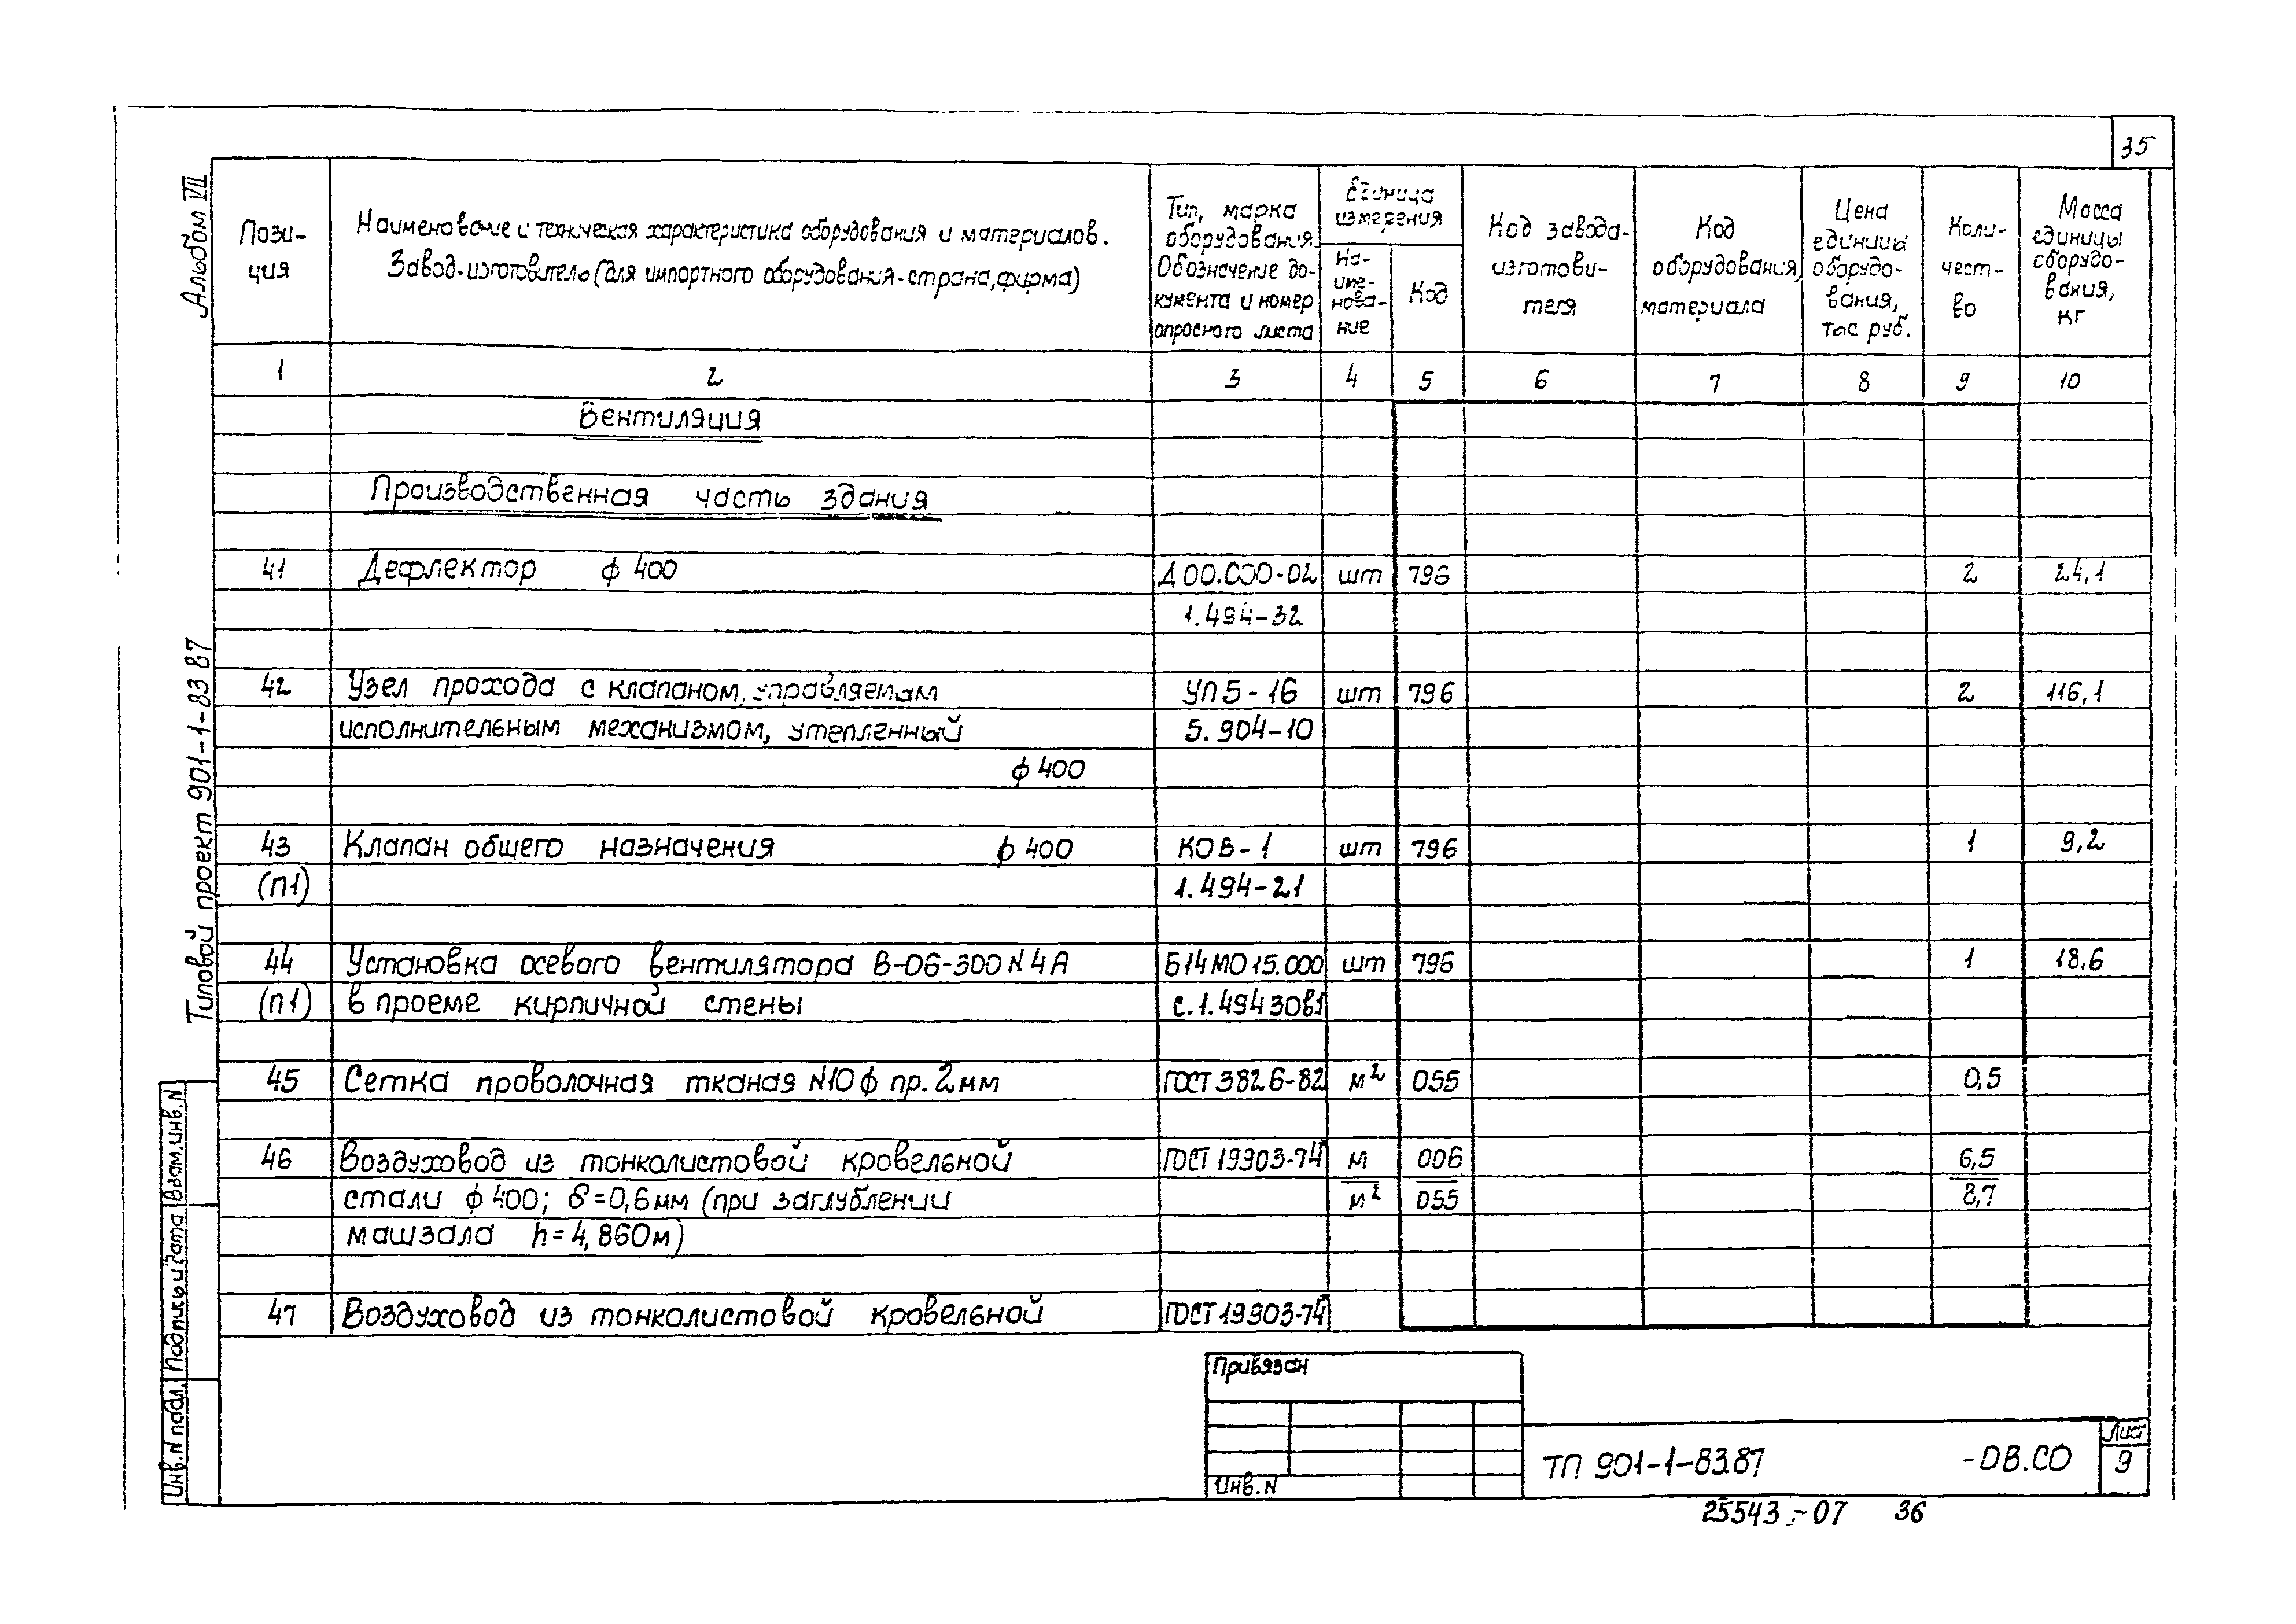 35
Альбом VII
Типовой проект 901-1-83 87
Пози-
ция
Наименование и техническая характеристика оборудования и материалов.
Завод-изготовитель (для импортного оборудования-страна, фирма)
Тип, марка
оборудования.
Обозначение до-
кумента и номер
опросного листа
Единица
измерения
На-
име-
нова-
ние
Код
Код завода-
изготови-
теля
Код
оборудования,
материала
Цена
единицы
оборудо-
вания,
тыс руб.
Коли-
чест-
во
Масса
единицы
оборудо-
вания,
кг
1 2 3 4 5 6 7 8 9 10
Вентиляция
Производственная часть здания
41 Дефлектор ф 400 Д 00.000-02 шт 796 2 24,1
1.494-32
42 Узел прохода с клапаном, управляемым УП5-16 шт 796 2 116,1
исполнительным механизмом, утепленный 5.904-10
ф 400
43 Клапан общего назначения ф 400 КОВ-1 шт 796 1 9,2
(п1) 1.494-21
44 Установка осевого вентилятора В-06-300 N 4А Б14МО15.000 шт 796 1 18,6
(п1) в проеме кирпичной стены с.1.494 30в1
45 Сетка проволочная тканая N10 ф пр. 2мм ГОСТ 3826-82 м² 055 0,5
46 Воздуховод из тонколистовой кровельной ГОСТ 19903-74 м 006 6,5
стали ф 400; δ=0,6мм (при заглублении м² 055 8,7
машзала h=4,860м)
47 Воздуховод из тонколистовой кровельной ГОСТ 19903-74
Взам.инв.N
Подпись и дата
Инв.N подл.
Привязан
Инв.N
ТП 901-1-83.87 -ОВ.СО
Лист
9
25543-07 36